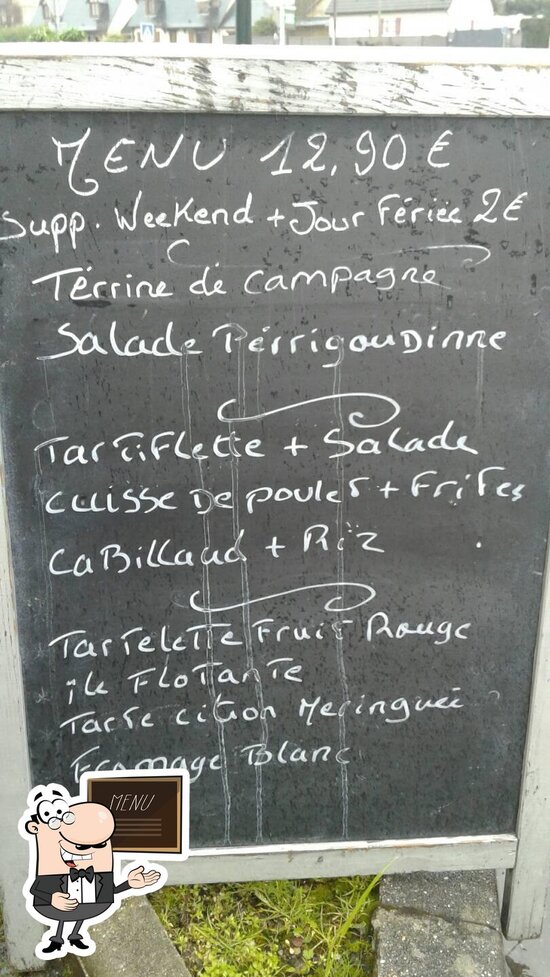 MENU 12,90 €
Supp. Weekend + Jour Fériée 2€
Terrine de campagne
Salade Périgoudinne
Tartiflette + Salade
cuisse De poulet + Frites
CaBillaud + Riz
Tartelette Fruit Rouge
île Flotante
Tarte citron Meringuée
Fromage Blanc
MENU